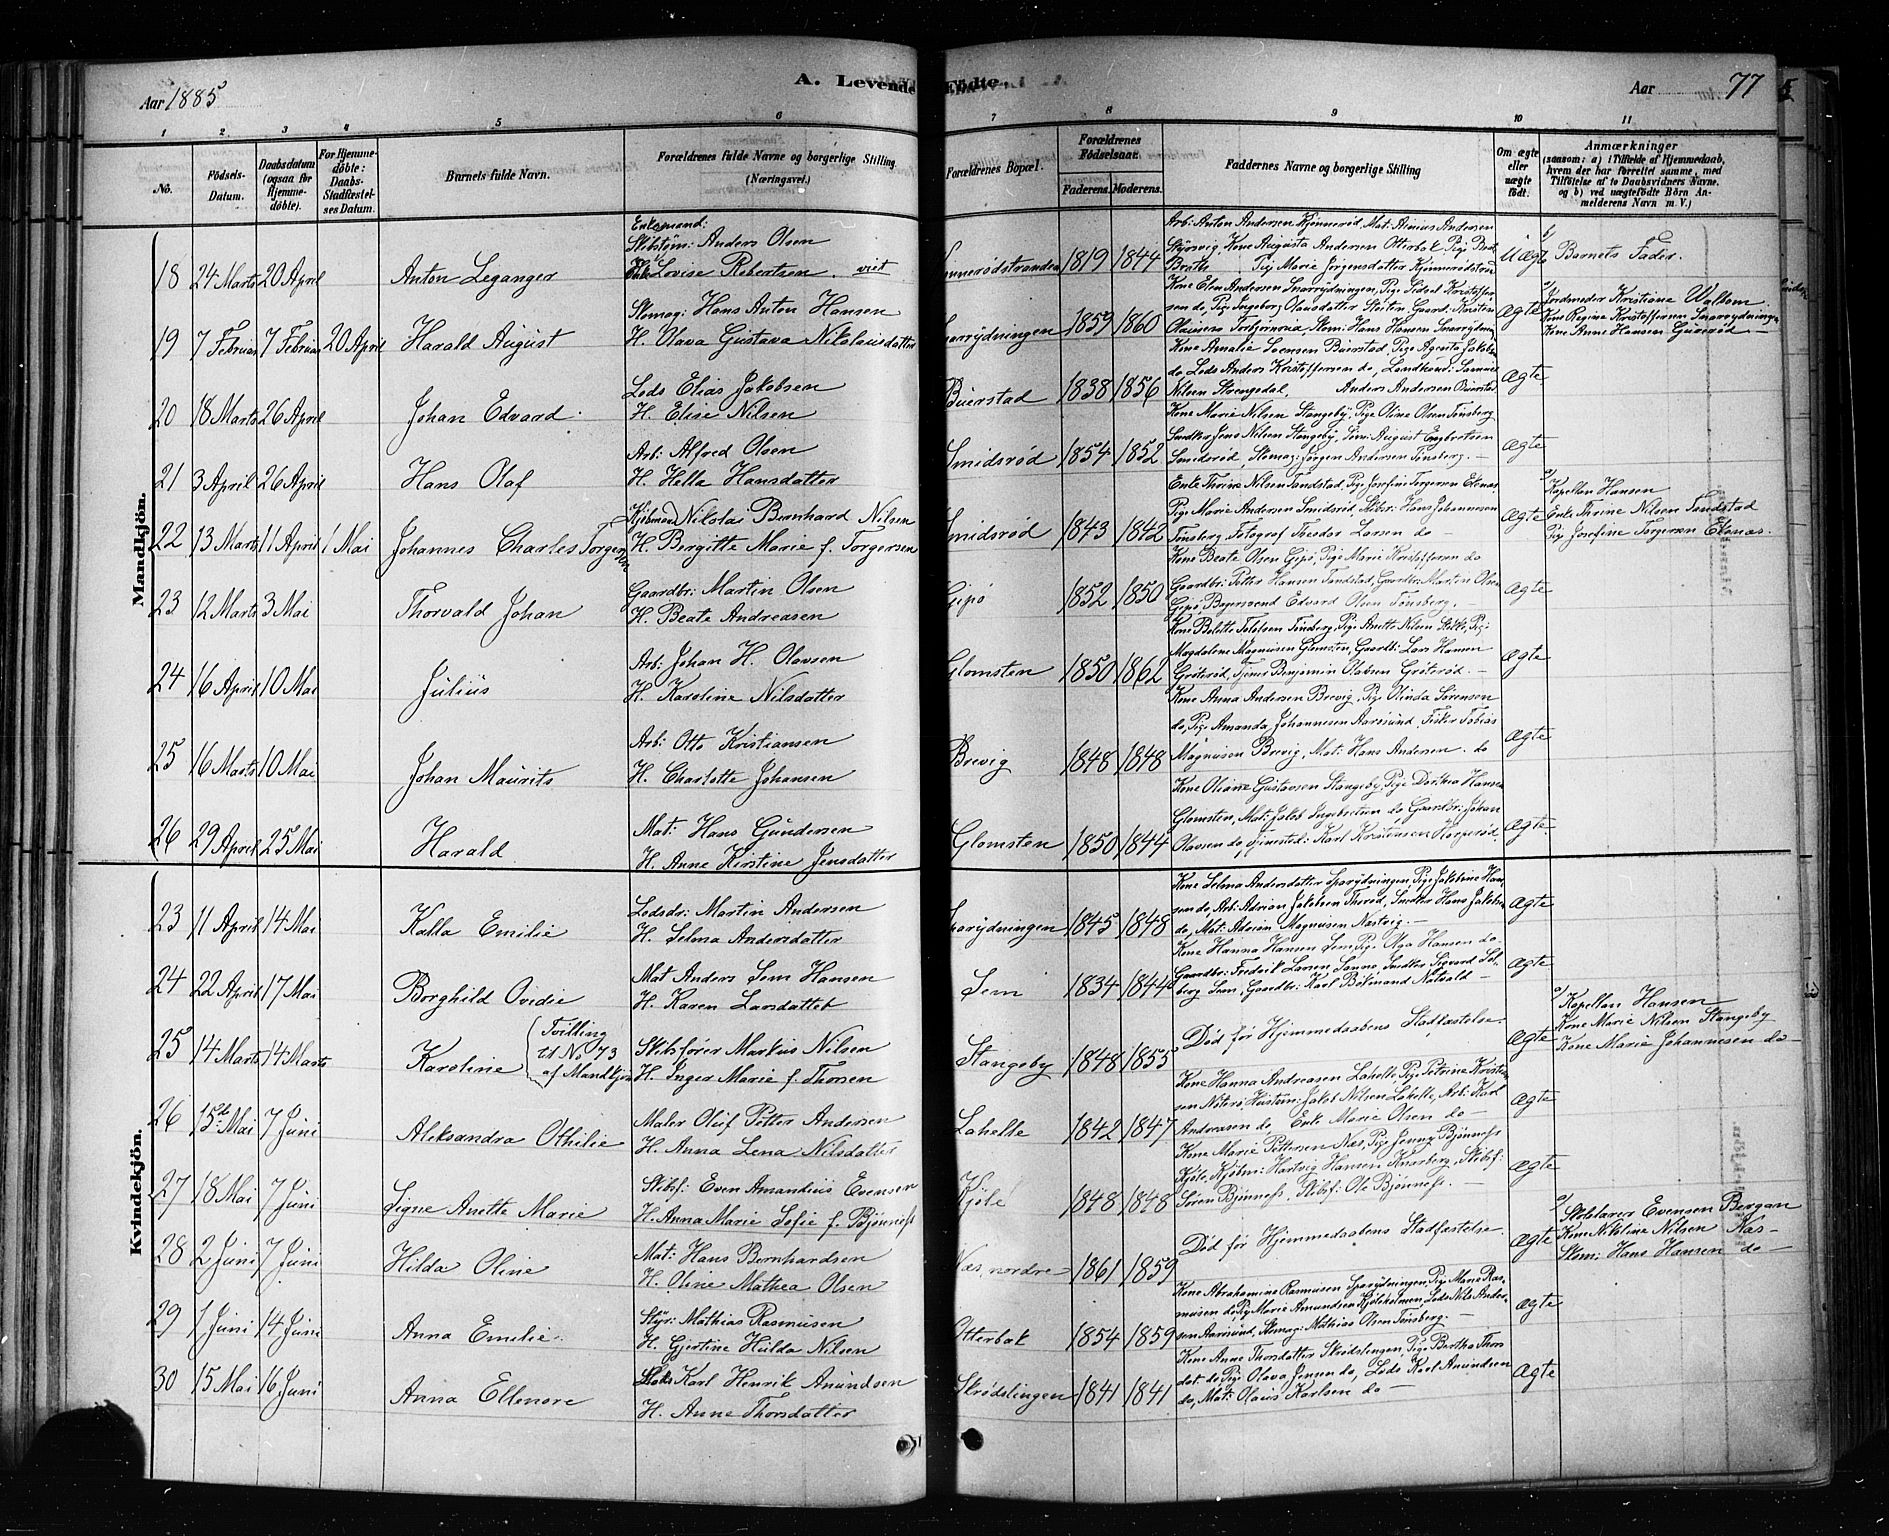 Aar 1885
A. Levende Fødte.
Aar 77
1 2 3 4 5 6 7 8 9 10 11
No.
Fødsels-Datum.
Daabsdatum (ogsaa for Hjemmedøbte).
For Hjemmedøbte: Daabs-Stadfæstelses Datum.
Barnets fulde Navn.
Forældrenes fulde Navne og borgerlige Stilling (Næringsvei.)
Forældrenes Bopæl.
Forældrenes Fødselsaar.
Faderens. Moderens.
Faddernes Navne og borgerlige Stilling
Om ægte eller uægte født.
Anmærkninger
(saasom: a) i Tilfælde af Hjemmedaab, hvem der har forrettet samme, med Tilføielse af to Daabsvidners Navne, og b) ved uægtefødte Børn Anmelderens Navn m. V.)
Mandkjön.
18 24 Marts 20 April Anton Leganger
Enkemand:
Skibstøm: Anders Olsen
Lovise Robertsen
1819 1844
Arb: Anton Andersen Kjønnerød, Mat:
Kone Augusta Andersen Otterbek, Pige
Pige Marie Jørgensdatter
Uægte
b) Barnets Fader.
19 7 Februar 7 Februar 20 April Harald August
Skomag: Hans Anton Hansen
H. Olava Gustava Nikolaisdatter
1859 1860
Kone Elen Andersen Snarrydningen, Pige
Pige Ingeborg
Skom: Hans Hansen
Ægte
a) Jordmoder Kristiane
Kone Regine Kristoffersen Snarrydningen
Kone Anne Hansen
20 18 Marts 26 April Johan Edvard
Lods Elias Jakobsen
H. Elise Nilsen
Buerstad 1838 1856
Kone Amalie Buerstad, Pige
do, Lods Anders Kristoffersen do,
Nilsen Anders Andersen Buerstad
Ægte
21 3 April 26 April Hans Olaf
Arb: Alfred Olsen
H. Hella Hansdatter
Smidsrød 1854 1852
Kone Marie Nilsen Stangeby, Pige Oline Olsen Tønsberg
Snedker Jens Nilsen Stangeby, August Engbretsen
Smidsrød, Skomag: Jørgen Andersen Tønsberg.
Ægte
22 13 Marts 11 April 1 Mai Johannes Charles Torgersen
Kjøbmand Nikolai Bernhard Nilsen
H. Bergitte Marie f. Torgersen
Smidsrød 1843 1842
Enke Thrine Nilsen Tandstad, Pige Josefine Torgersen Ekenæs
Pige Marie Andersen Smidsrød, Hans Johannesen
Tønsberg, Fotograf Theodor Larsen do
Ægte
a) Kapellan Hansen
Enke Thrine Nilsen Tandstad
Pig Josefine Torgersen Ekenæs.
23 12 Marts 3 Mai Thorvald Johan
Gaardbr: Martin Olsen
H. Beate Andreasen
Gipø 1852 1850
Kone Beate Olsen Gipø, Pige Marie Kristoffersen do
Gaardbr: Petter Hansen Tandstad, Gaardbr: Martin Olsen
Gipø, Edvard Olsen Tønsberg.
Ægte
24 16 April 10 Mai Julius
Arb: Johan H. Olavsen
H. Karoline Nilsdatter
Glomsten 1850 1862
Kone Bolette Tønsberg, Pige Anette Nilsen
Magdalene Magnusen Glomsten, Gaardb: Lars Hansen
Grøterød, Tjener Benjamin Olavsen Grøterød.
Ægte
25 16 Marts 10 Mai Johan Maurits
Arb: Otto Kristiansen
H. Charlotte Johansen
Brevig 1848 1848
Kone Anna Andersen Brevig, Pige Olinda Sørensen
do, Pige Amanda Johannesen Aarøsund, Fisker Tobias
Magnusen Brevig, Mat: Hans Andersen. do
Ægte
26 29 April 25 Mai Harald
Mat: Hans Gundersen
H. Anne Kirstine Jensdatter
Glomsten 1850 1844
Kone Oliane Gustavsen Stangeby, Pige Dorthea Hansen
Glomsten, Mat: Jakob Ingebretsen do, Gaardbr: Johan
Olavsen do, Karl Kristensen
Ægte
Kvindekjön.
23 11 April 14 Mai Kalla Emilie
Lodsdr: Martin Andersen
H. Selma Andersdatter
1845 1848
Kone Selma Andersdatter Pige Jakobine Hansen
do, Arb: Adrian Jakobsen Thorød, Snedker Hans Jakobsen
do, Mat: Adrian Magnusen
Ægte
24 22 April 17 Mai Borghild Ovidie
Mat Anders Sem Hansen
H. Karen Larsdatter
Sem 1834 1844
Kone Hanna Hansen Sem, Pige Olga Hansen do.
Gaardbr: Fredrik Larsen Sanne, Snedker Sigvard
Sem, Gaardbr: Karl
Ægte
25 14 Marts 14 Marts Karoline (Tvilling til No 73 af Mandkjøn
Skibsfører Markus Nilsen
H. Inger Marie f. Thorsen
Stangeby 1848 1855
Død før Hjemmedaabens Stadfæstelse.
Ægte
a) Kapellan Hansen
Kone Marie Nilsen Stangeby
Kone Marie Johannesen do
26 15de Mai 7 Juni Aleksandra Othilie
Maler Oluf Petter Andersen
H. Anna Lena Nilsdatter
Lahelle 1842 1847
Kone Hanna Andreasen Lahelle, Pige Petrine Kristensen
Nøterø, Jakob Nilsen Lahelle, Arb: Karl
Andreasen do, Enke Marie Olsen do
Ægte
27 18 Mai 7 Juni Signe Anette Marie
Skibsf: Even Amandius Evensen
H. Anna Marie Sofie f. Bjønness
Kjøle 1848 1848
Kone Marie Pettersen Næs, Pige Jenny Bjønness
Kjøle, Kjøbm: Hartvig Hansen Knarberg, Skibsf:
Søren Bjønness, Skibsf: Ole Bjønness.
Ægte
28 2 Juni 7 Juni Hilda Oline
Mat: Hans Bernhardsen
H. Oline Mathea Olsen
Næs, nordre 1861 1859
Død før Hjemmedaabens Stadfæstelse
Ægte
a) Skolelærer Evensen Bergan
Kone Nikoline Nilsen Næs
Skom: Hans Hansen do
29 1 Juni 14 Juni Anna Emilie
Styr: Mathias Rasmusen
H. Gjertine Hulda Nilsen
Otterbæk 1854 1859
Kone Abrahamine Rasmusen Pige Marie Rasmusen
do, Pig Marie Amundsen Kjøleholmen, Lods Nils Andersen
Aarøsund, Skomag: Mathias Olsen Tønsberg.
Ægte
30 15 Mai 16 Juni Anna Ellenore
Karl Henrik Amundsen
H. Anne Thorsdatter
Skrødslingen 1841 1841
Kone Anne Thorsdatter Skrødslingen, Pige Berthe Thorsdat.
do, Pige Olava Jensen do, Lods Karl Amundsen
do, Mat: Olaus Karlsen do
Ægte